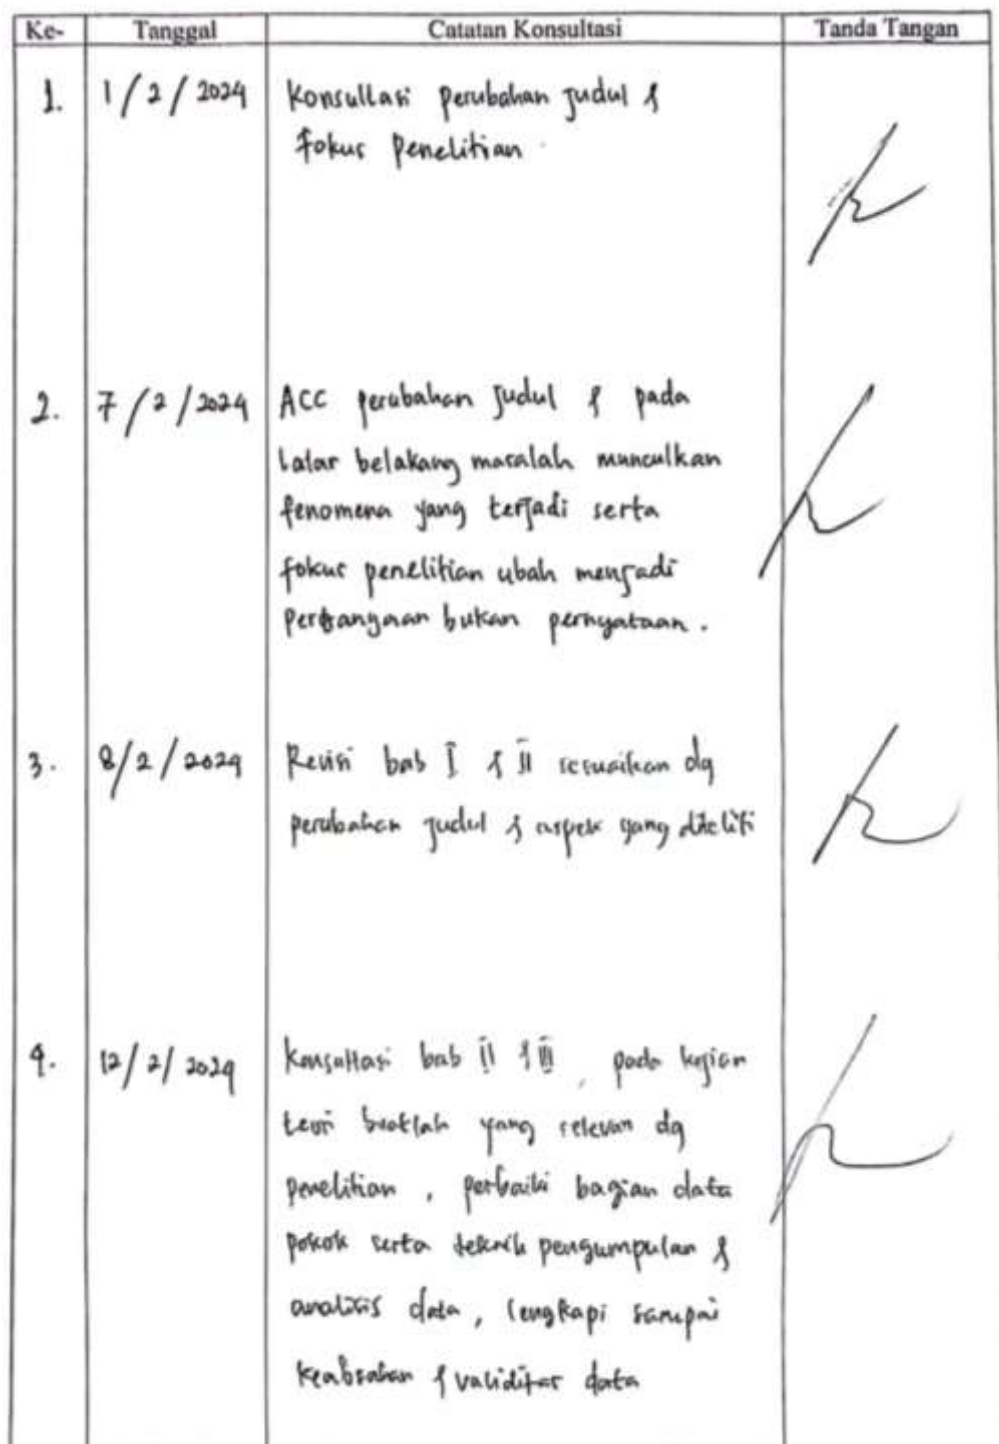 Ke- Tanggal Catatan Konsultasi Tanda Tangan
1. 1/2/2024 Konsultasi perubahan judul &
fokus Penelitian
2. 7/2/2024 ACC perubahan judul & pada
latar belakang masalah munculkan
fenomena yang terjadi serta
fokus penelitian ubah menjadi
Pertanyaan bukan pernyataan.
3. 8/2/2024 Revisi bab I & II sesuaikan dg
perubahan judul & aspek yang diteliti
4. 12/2/2024 Konsultasi bab II & III, pada kajian
teori buatlah yang relevan dg
penelitian, perbaiki bagian data
pokok serta teknik pengumpulan &
analisis data, lengkapi sampai
keabsahan & validitas data